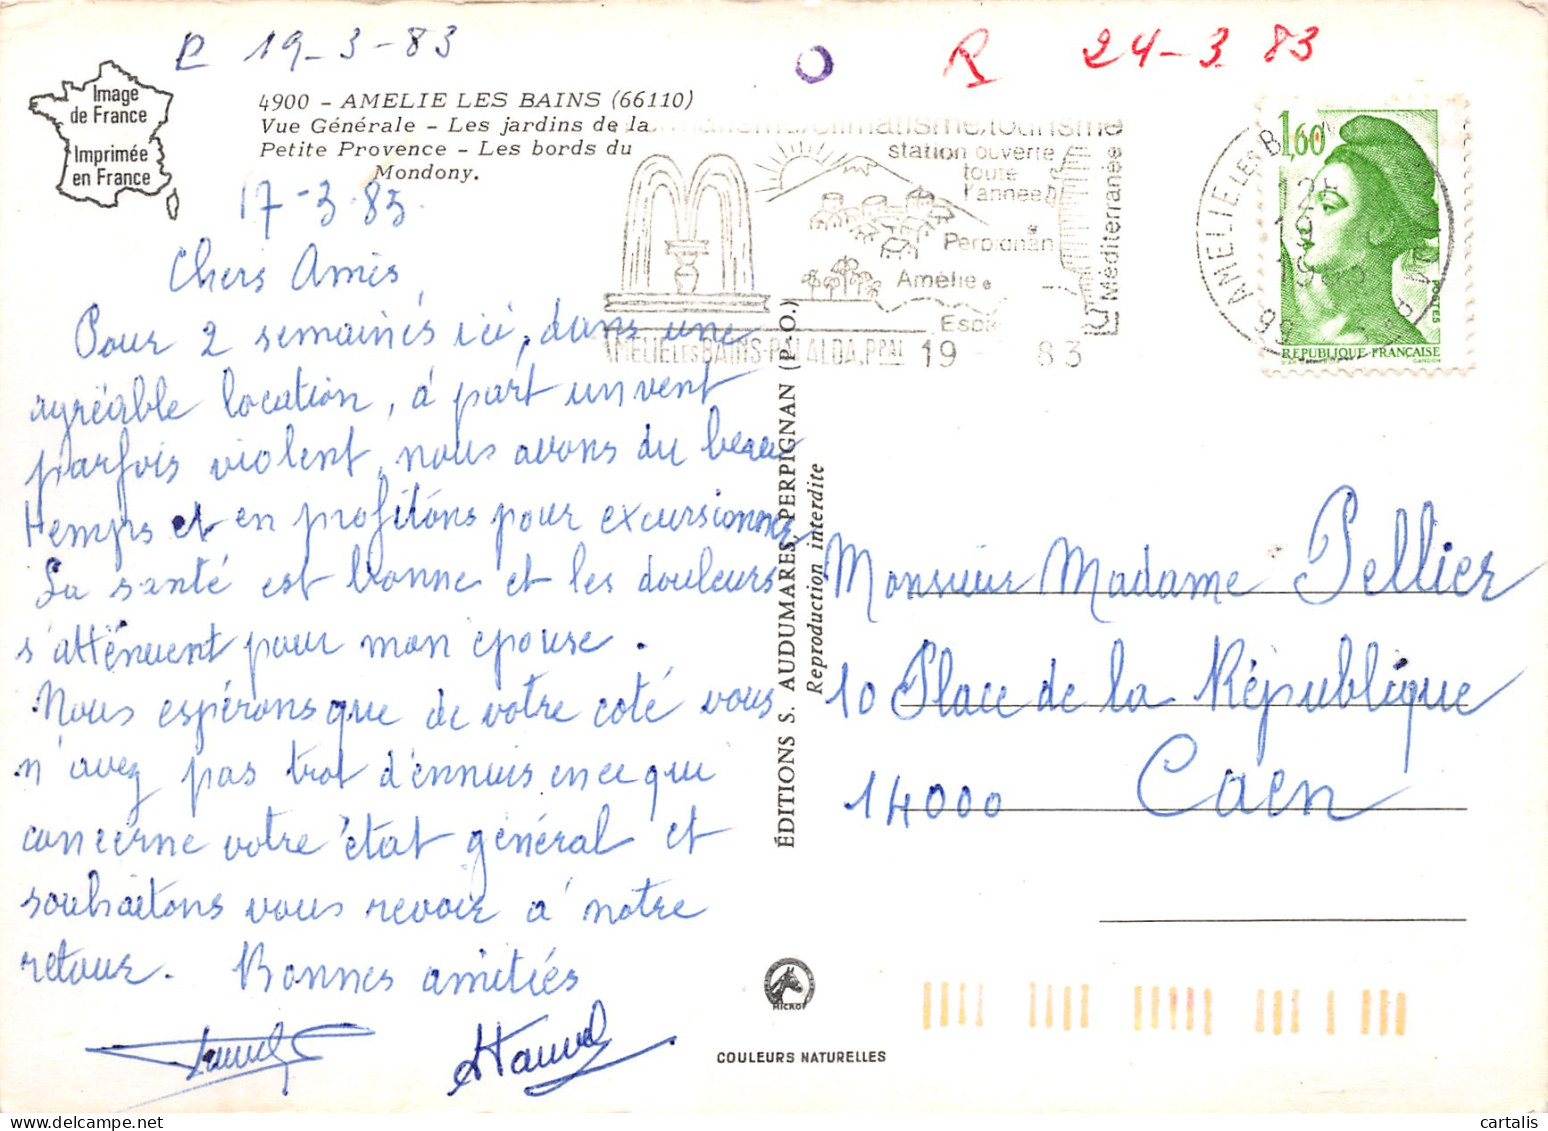 R 19-3-83
R 24-3 83
Image
de France
Imprimée
en France
4900 - AMELIE LES BAINS (66110)
Vue Générale - Les jardins de la
Petite Provence - Les bords du
Mondony.
17-3-83.
Chers Amis,
Pour 2 semaines ici, dans une
agréable location, à part un vent
parfois violent, nous avons du beau
temps et en profitons pour excursionner
La santé est bonne et les douleurs
s'atténuent pour mon epouse.
Nous espérons que de votre coté vous
n'avez pas trot d'ennuis en ce que
concerne votre état général et
souhaitons vous revoir à notre
retour. Bonnes amitiés
climatisme.tourisme
station ouverte
toute
l'année
Perpignan
Amélie
Méditerranée
AMELIE LES BAINS-PALALDA.PPAL 19 83
66 AMELIE LES BAINS
1,60
POSTES
REPUBLIQUE FRANÇAISE
GANDON
ÉDITIONS S. AUDUMARES, PERPIGNAN (P.-O.)
Reproduction interdite
Monsieur Madame Pellier
10 Place de la République
14000 Caen
MICRO
COULEURS NATURELLES
cartalis